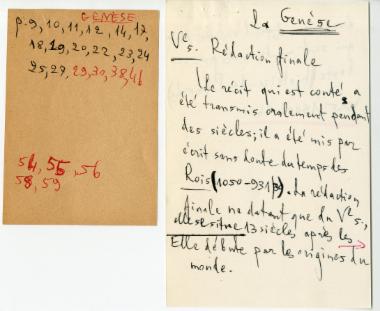 GENÈSE
p. 9, 10, 11, 12, 14, 17,
18, 19, 20, 22, 23, 24
25, 27, 29, 30, 38, 41
54, 55, 56
58, 59
La Genèse
Ve s. Rédaction finale
Le récit qui est conté a
été transmis oralement pendant
des siècles; il a été mis par
écrit sans doute du temps des
Rois (1050-931). La rédaction
finale ne datant que du Ve s.,
elle se situe 13 siècles après les
Elle débute par les origines du
monde.